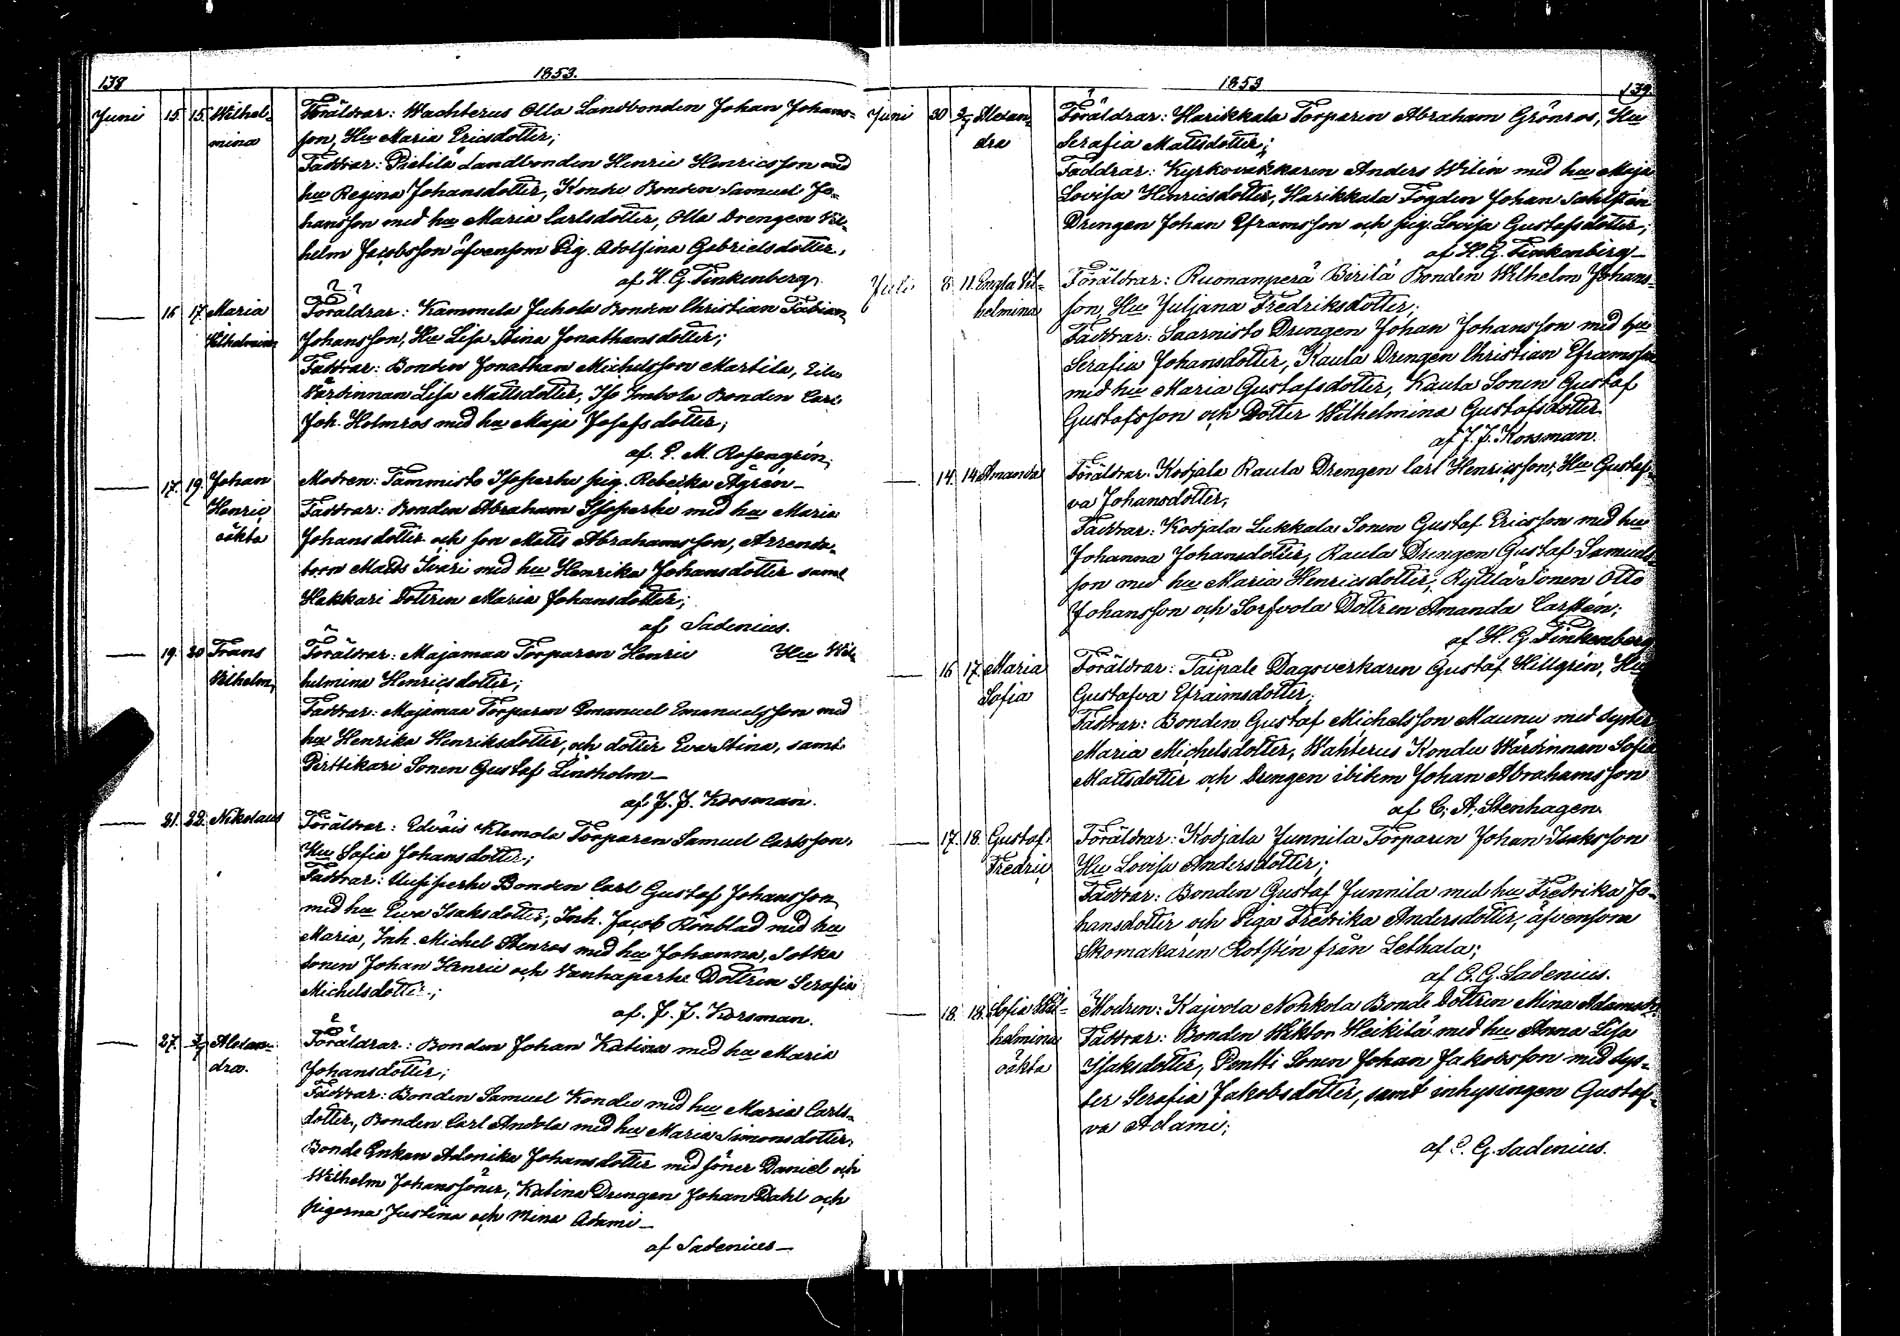 138
1853.
Juni 15. 15. Wilhel-
mina
Föräldrar: Wachterus Olla Landbonden Johan Johans-
son, Hu Maria Ericsdotter;
Faddrar: Pietilä Landbonden Henric Henricsson med
hu Regina Johansdotter, Kondu Bonden Samuel Jo-
hansson med hu Maria Carlsdotter, Olla Drengen Vil-
helm Jacobsson äfvensom Pig. Adolfina Gabrielsdotter,
af H. G. Finkenberg.
— 16 17 Maria
Vilhelmina
Föräldrar: Kammela Juhola Bonden Christian Fabian
Johansson, Hu Lisa Stina Jonathansdotter;
Faddrar: Bonden Jonathan Michelsson Martila, Eilo
Värdinnan Lisa Mattsdotter, Iso Imbola Bonden Carl
Joh. Holmros med hu Maja Josefsdotter;
af P. M. Rosengrén.
— 17. 19. Johan
Henric
oäkta
Modren: Tammisto Isoperhe pig. Rebecka Ågrén —
Faddrar: Bonden Abraham Isoperhe med hu Maria
Johansdotter och son Matts Abrahamsson, Arrenda-
torn Matts Ivari med hu Henrika Johansdotter samt
Hakkari Dottren Maria Johansdotter;
af Sadenius.
— 19. 20 Frans
Vilhelm,
Föräldrar: Majamaa Torparen Henric Hu Wil-
helmina Henricsdotter;
Faddrar: Majamaa Torparen Emanuel Emanuelsson med
hu Henrika Henriksdotter, och dotter Eva Stina, samt
Pirttikari Sonen Gustaf Lindholm —
af J. J. Korsman.
— 21. 22. Nikolaus
Föräldrar: Edväis Klemola Torparen Samuel Carlsson,
Hu Sofia Johansdotter;
Faddrar: Uusiperhe Bonden Carl Gustaf Johansson
med hu Ewa Isaksdotter, Inh. Jacob Rönblad med hu
Maria, Inh. Michel Stenros med hu Johanna, Sotka
Sonen Johan Henric och Vanhaperhe Dottren Serafia
Michelsdotter;
af J. J. Korsman.
— 27. 3/7 Alexan-
dra.
Föräldrar: Bonden Johan Katina med hu Maria
Johansdotter;
Faddrar: Bonden Samuel Kondu med hu Maria Carls-
dotter, Bonden Carl Andola med hu Maria Simonsdotter,
Bonde Enkan Adonika Johansdotter med söner Daniel och
Wilhelm Johanssöner, Katina Drengen Johan Dahl och
pigorna Justina och Mina Adami —
af Sadenius —
1853
139.
Juni 30 3/7 Alexan-
dra
Föräldrar: Harikkala Torparen Abraham Grönros, Hu
Serafia Mattsdotter;
Faddrar: Kyrkoväktaren Anders Wilén med hu Maja
Lovisa Henricsdotter, Harikkala Fogden Johan Sahlstén
Drengen Johan Eframsson och pig. Lovisa Gustafsdotter;
af H. G. Finkenberg —
Juli 8 11. Engla Vil-
helmina
Föräldrar: Ruonanperä Birilä Bonden Wilhelm Johans-
son, Hu Juljana Fredriksdotter;
Faddrar: Saarnisto Drengen Johan Johansson med hu
Serafia Johansdotter, Kaula Drengen Christian Eframsson
med hu Maria Gustafsdotter, Kaula Sonen Gustaf
Gustafsson och Dotter Wilhelmina Gustafsdotter.
af J. J. Korsman.
— 14. 14 Amanda
Föräldrar: Kodjala Raula Drengen Carl Henricsson, Hu Gustaf-
va Johansdotter,
Faddrar: Kodjala Lukkala Sonen Gustaf Ericsson med hu
Johanna Johansdotter, Raula Drengen Gustaf Samuels-
son med hu Maria Henricsdotter, Ryttlä Sonen Otto
Johansson och Sorfvola Dottren Amanda Carstén;
af H. G. Finkenberg
— 16 17. Maria
Sofia
Föräldrar: Taipale Dagsverkaren Gustaf Hillgrén, Hu
Gustafva Efraimsdotter,
Faddrar: Bonden Gustaf Michelsson Maunu med syster
Maria Michelsdotter, Wahterus Kondu Wärdinnan Sofia
Mattsdotter och Drengen ibidem Johan Abrahamsson
af C. A. Stenhagen.
— 17. 18. Gustaf
Fredric
Föräldrar: Kodjala Junnila Torparen Johan Isaksson
Hu Lovisa Andersdotter;
Faddrar: Bonden Gustaf Junnila med hu Fredrika Jo-
hansdotter och Piga Fredrika Andersdotter, äfvensom
Skomakaren Rotstén från Lethala;
af C. G. Sadenius.
— 18. 18. Sofia Wil-
helmina
oäkta
Modren: Kajvola Nohkola Bonde Dottren Mina Adamsdr.
Faddrar: Bonden Wiktor Heikilä med hu Anna Lisa
Isaksdotter, Pentti Sonen Johan Jakobsson med sys-
ter Serafia Jakobsdotter, samt inhysingen Gustaf-
va Adami;
af C. G. Sadenius.